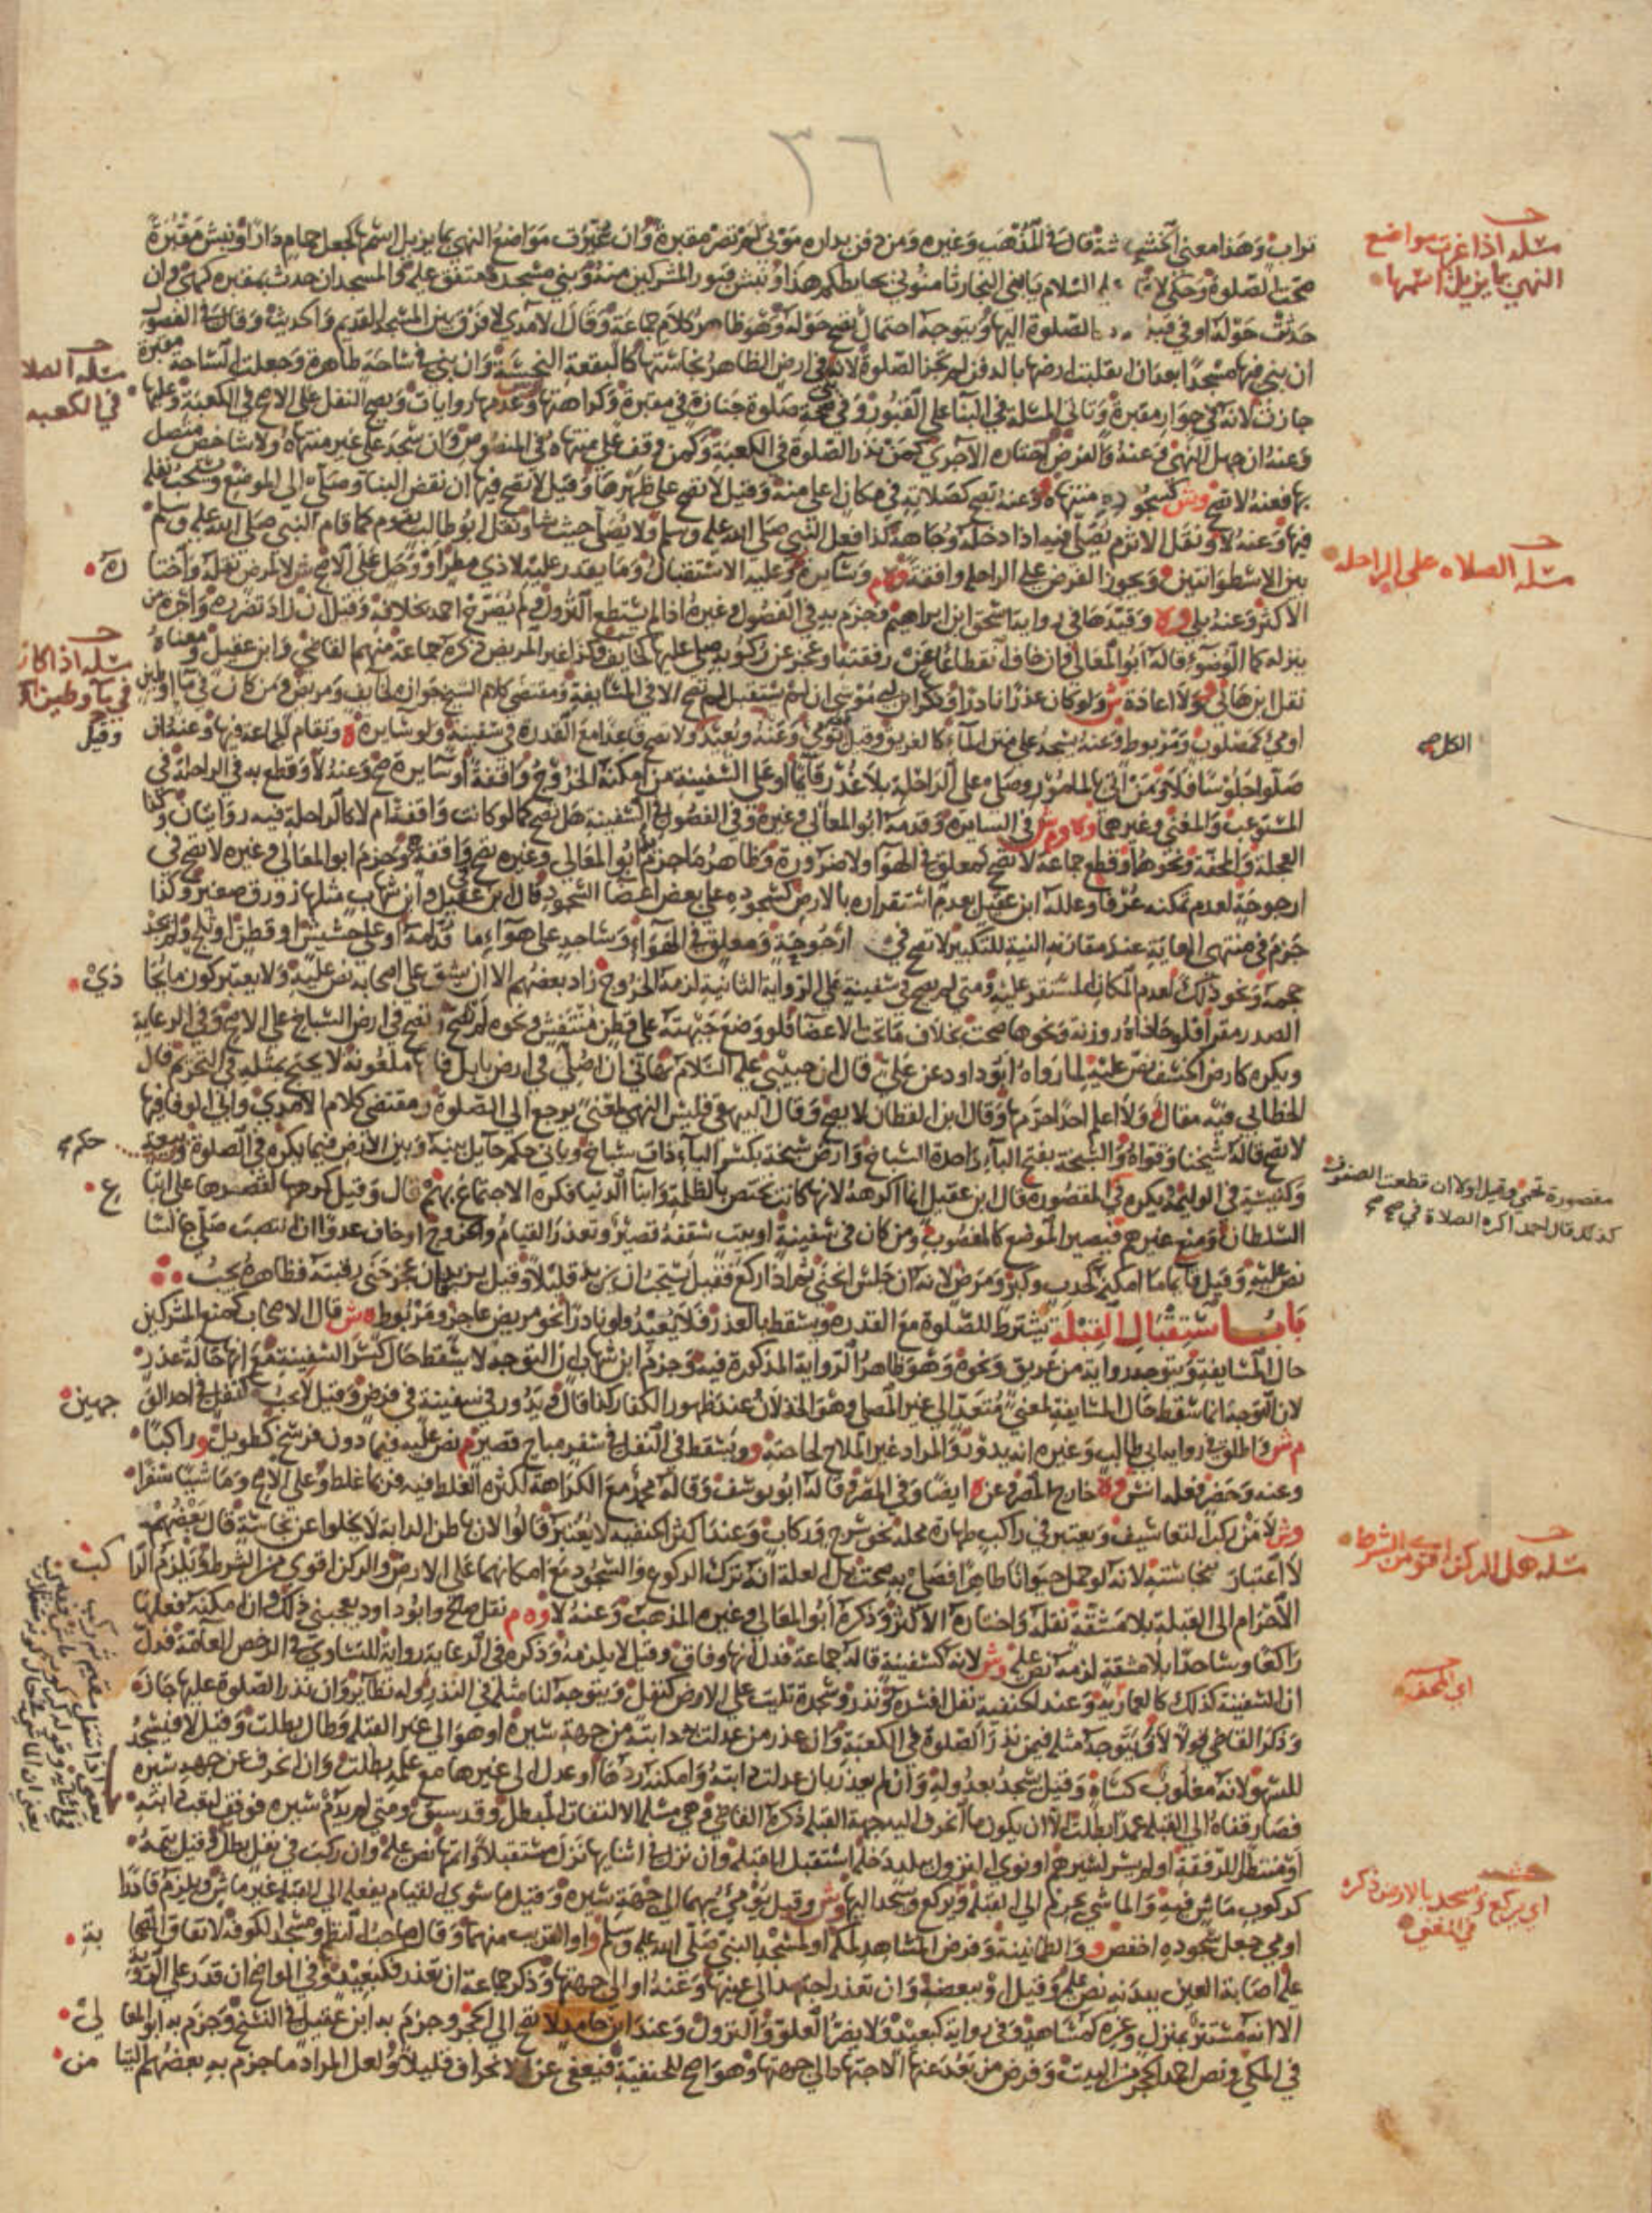 ٣٦
تراب وهذا معنى الخشب قال في المذهب وغيره ومن دفن بداره موتى لم تصر مقبرة وان غيرت مواضع النهي بما يزيل اسمها كجعل حمام دارا او نبش مقبرة
صحت الصلوة وحكى لا عليه السلام يا بني النجار ثامنوني بحايطكم هذا ونبش قبور المشركين منه وبنى مسجده متفق عليه والمسجد ان حدث بمقبرة كهي وان
حدثت حوله او في قبلته الصلوة اليها ويتوجه احتمال تصح حوله وهو ظاهر كلام جماعة وقال الامدي لا فرق بين المسجد القديم والحديث وقال في الفصول
ان بني فيها مسجدا بعد ان انقلبت ارضها بالدفن لم تجز الصلوة لانه في ارض الظاهر نجاستها كالبقعة النجسة وان بني في ساحة طاهرة وجعلت الساحة مقبرة
جازت لانه في جوار مقبرة وتاتي المسئلة في البنا على القبور وفي صحة صلوة جنازة في مقبرة وكراهتها وعدمها روايات وتصح النفل على الاصح في الكعبة وعليها
وعنه ان جهل النهي وعنه والفرض اختاره الاجري كمن نذر الصلوة في الكعبة وكمن وقف على منتهاه في المنصوص وان سجد على غير منتهاه ولا شاخص متصل
بها فعنه لا تصح وش كسجوده منتهاه وعنه تصح كصلاته في مكان اعلى منه وقيل لا تصح على ظهرها وقيل لا تصح فيها ان نقض البنا وصلى الى الموضع ويستحب نفله
فيها وعنه لا ونقل الاثرم يصلي فيه اذا دخله وجاهه كذا فعل النبي صلى الله عليه وسلم ولا يصلي حيث شا ونقل ابو طالب يقوم كما قام النبي صلى الله عليه وسلم
بين الاسطوانتين ويجوز الفرض على الراحلة واقفة وسايرة وعليه الاستقبال وما يقدر عليه لاذى مطر او وحل على الاصح ش لا لمرض نقله واختاره
الاكثر وعنه بلى وقيدها في رواية اسحق ابن ابراهيم وجزم به في الفصول وغيره اذا لم يستطع النزول ولم يصرح احمد بخلافه وقيل ان زاد تضرره واجرة من
ينزله كما الوضوء قاله ابو المعالي وان خاف انقطاعا عن رفقته او عجز عن ركوبه صلى عليها كخايف وكذا غير المريض ذكره جماعة منهم القاضي وابن عقيل ومعناه
نقل ابن هاني ولا اعادة ش ولو كان عذرا نادرا وذكر ابن ابي موسى ان لم يستقبل لم تصح الا في المسايفة ومقتضى كلام الشيخ جوازه لخايف ومريض ومن كان في ماء وطين
اومى كمصلوب ومربوط وعنه يسجد على متن الماء كالغريق وقيل يومي وعنه ويعيد ولا تصح قاعدا مع القدرة في سفينة ولو سايرة ه وتقام الجماعة فيها وعنه ان
صلوا جلوسا فلا ومن اتى بالمامور وصلى على الراحلة بلا عذر قايما او على السفينة من امكنه الخروج واقفة او سايرة صح وعنه لا وقطع به في الراحلة في
المستوعب والمغني وغيرهما في السايرة وقدمه ابو المعالي وغيره وفي الفصول في السفينة هل تصح كما لو كانت واقفة ام لا كالراحلة فيه روايتان وكذا
العجلة والمحفة ونحوهما وقطع جماعة لا تصح كمعلق في الهواء ولا ضرورة وظاهر ما جزم به ابو المعالي وغيره تصح واقفة وجزم ابو المعالي وغيره لا تصح في
ارجوحة لعدم تمكنه عرفا وعلله ابن عقيل بعدم استقراره بالارض كسجوده على بعض اعضا السجود قال ابن عقيل وابن شهاب مثلها زورق صغير وكذا
جزم في منتهى الغاية عند مقارنة النية للتكبير لا تصح في ارجوحة ومعلق في الهواء وساجد على هواء ما قدامه او على حشيش او قطن او ثلج ولم يجد
حجمه ونحو ذلك لعدم المكان المستقر عليه ومتى لم يصح في سفينة على الرواية الثانية لزمه الخروج زاد بعضهم الا ان يشق على اصحابه نص عليه ولا يعتبر كون ما يحاذي
الصدر مقرا فلو حاذاه روزنة ونحوها صحت بخلاف ما تحت الاعضا فلو وضع جبهته على قطن منتفش ونحوه لم تصح وتصح في ارض السباخ على الاصح وفي الرعاية
ويكره كارض الخسف نص عليه لما رواه ابو داود عن علي قال ان حبيبي عليه السلام نهاني ان اصلي في ارض بابل فانها ملعونة لا يحتج بمثله في التحريم قال
الخطابي فيه مقال ولا اعلم احدا حرمها وقال ابن القطان لا يصح وقال البيهقي فليس النهي لمعنى يرجع الى الصلوة ومقتضى كلام الامدي وابي الوفا فيها
لا تصح قاله شيخنا وقواه والسبخة بفتح الباء واحدة السباخ وارض سبخة بكسر الباء ذات سباخ وياتي حكم حايل بينه وبين الارض فيما يكره في الصلوة وبيعة
وكنيسة في الوليمة ويكره في المقصورة قال ابن عقيل انما اكرهه لانها كانت تختص بالظلمة وابنا الدنيا فكره الاجتماع بهم قال وقيل كرهها لقصرها على اتباع
السلطان ومنع غيرهم فيصير الموضع كالمغصوب ومن كان في سفينة او بيت سقفه قصير وتعذر القيام والخروج او خاف عدوا ان انتصب صلى جالسا
نص عليه وقيل قايما ما امكنه كحدب وكبر ومرض لانه ان جلس انحنى ثم اذا ركع فقيل يستحب ان يزيد قليلا وقيل يزيد فان عجز حنى رقبته فظاهره يجب
باب استقبال القبلة يشترط للصلوة مع القدرة ويسقط بالعذر فلا يعيد ولو نادرا نحو مريض عاجز ومربوط ش قال الاصحاب كمنع المشركين
حال المسايفة ويتوجه رواية من غريق ونحوه وهو ظاهر الرواية المذكورة فيه وجزم ابن شهاب ان التوجه لا يسقط حال كسر السفينة مع انها حالة عذر
لان التوجه انما سقط حال المسايفة لمعنى متعد الى غير المصلي وهو الخذلان عند ظهور الكفار كذا قال ويدور في سفينة في فرض وقيل لا يجب كنفل في احد الوجهين
م ش واطلق في رواية ابي طالب وغيره انه يدور والمراد غير الملاح لحاجته ويسقط في النفل في سفر مباح قصير م نص عليه فيما دون فرسخ كطويل وراكبا
وعنه وحضر فعله انس خارج المصر وعن ه ايضا وفي المصر وقاله ابو يوسف وقاله محمد مع الكراهة لكثرة الغلط فيه فربما غلط وعلى الاصح وماشيا سفرا
وش لا من ركب التعاسيف ويعتبر في راكب طهارة محله نحو سرج وركاب وعند اكثر الحنفية لا يعتبر قالوا لان باطن الدابة لا يخلوا عن نجاسة قال بعضهم
لا اعتبار بنجاسته لانه لو حمل حيوانا طاهرا فصلى به صحت بل العلة انه ترك الركوع والسجود مع امكانهما على الارض والركن اقوى من الشرط ويلزم الراكب
الاحرام الى القبلة بلا مشقة نقله واختاره الاكثر وذكره ابو المعالي وغيره المذهب وعنه لا وه م نقل صالح وابو داود يعجبني ذلك وان امكنه فعلها
راكعا وساجدا بلا مشقة لزمه نص عليه وش لانه كسفينة قاله جماعة فدل انها وفاق وقيل لا يلزمه وذكره في الرعاية رواية للتساوي في الرخص العامة فدل
ان السفينة كذلك كالعمارية وعند الحنفية نفل افسده ونذر وسجدة تليت على الارض كنفل ويتوجه لنا مثله في النذر وله نظاير وان نذر الصلوة عليها جاز
وذكر القاضي قولا لا ويتوجه مثله فيمن نذر الصلوة في الكعبة وان عذر من عدلت به دابته من جهة سيره او هو الى غير القبلة وطال بطلت وقيل لا فيسجد
للسهو لانه مغلوب كساه وقيل يسجد بعدوله وان لم يعذر بان عدلت دابته وامكنه ردها او عدل الى غيرها مع علمه بطلت وان انحرف عن جهة سيره
فصار قفاه الى القبلة عمدا بطلت الا ان يكون ما انحرف اليه جهة القبلة ذكره القاضي وهي مسئلة الالتفات المبطل وقد سبق ومتى لم يدم سيره فوقف لتعب دابته
او منتظرا للرفقة او لم يسر لسيرهم او نوى النزول ببلد دخله استقبل القبلة وان نزل في اثنايها نزل مستقبلا واتمها نص عليه وان ركب في نفل بطل وقيل يتمه
كركوب ماش فيه والماشي يحرم الى القبلة ويركع ويسجد اليها وش وقيل يومي بهما الى جهة سيره وقيل ما سوى القيام يفعله الى القبلة غير ماش ويلزم قادرا
اومى جعل سجوده اخفض و والطمانينة وفرض المشاهد لمكة او لمسجد النبي صلى الله عليه وسلم او القريب منهما وقال صاحب النظم ومسجد الكوفة لاتفاق الصحابة
عليه اصابة العين ببدنه نص عليه وقيل او ببعضه وان تعذر اجتهد الى عينها وعنه او الى جهتها وذكر جماعة ان تعذر فكبعيد وفي الواضح ان قدر على الروية
الا انه مستتر بمنزل وغيره كمشاهد وفي رواية كبعيد ولا يضر العلو والنزول وعند ابن حامد لا تصح الى الحجر وجزم به ابن عقيل في النسخ وجزم به ابو المعالي
في المكي ونص احمد الحجر من البيت وفرض من بعد عنها الاجتهاد الى جهتها وهو اصح للحنفية فيعفى عن الانحراف قليلا ولعل المراد ما جزم به بعضهم التيامن
مسئلة اذا غيرت مواضع
النهي بما يزيل اسمها
مسئلة الصلاة
في الكعبة
مسئلة الصلاه على الراحله
مسئلة اذا كان
في ماء وطين
وقيل
الكل صح
حكم
مقصورة تحمى وقيل اولا ان قطعت الصفوف
كذلك قال احمد اكره الصلاة في
مسئلة هل الركن اقوى من الشرط
اي المحفة
اي يركع ويسجد بالارض ذكره
في المغني